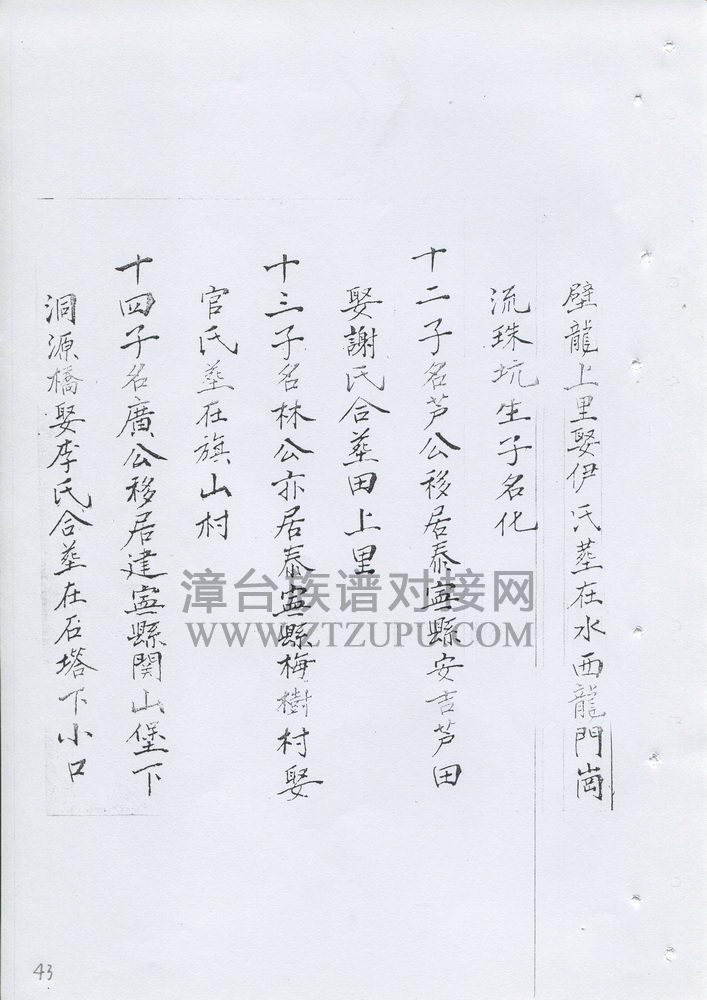 壁龍上里娶伊氏塟在水西龍門崗
流珠坑生子名化
十二子名芦公移居泰寍縣安吉芦田
娶謝氏合塟田上里
十三子名林公亦居泰寍縣梅樹村娶
官氏塟在旗山村
十四子名廣公移居建寍縣関山堡下
洞源橋娶李氏合塟在石塔下小口
漳台族谱对接网
WWW.ZTZUPU.COM
43